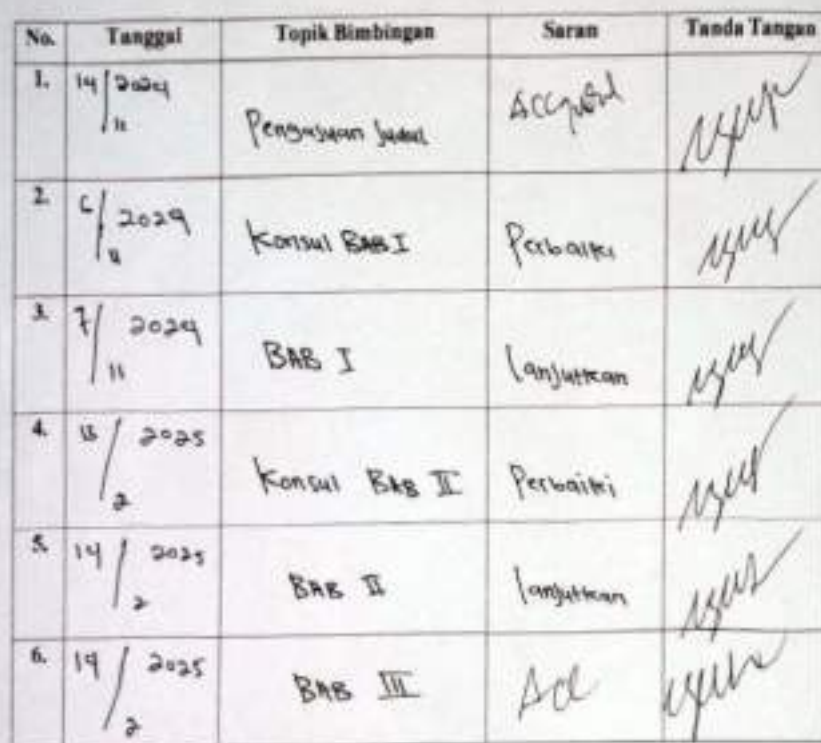 No. Tanggal Topik Bimbingan Saran Tanda Tangan
1. 14/11 2024 Pengajuan Judul Acc
2. 6/11 2024 Konsul BAB I Perbaiki
3. 7/11 2024 BAB I lanjutkan
4. 13/2 2025 Konsul BAB II Perbaiki
5. 14/2 2025 BAB II lanjutkan
6. 19/2 2025 BAB III Acc